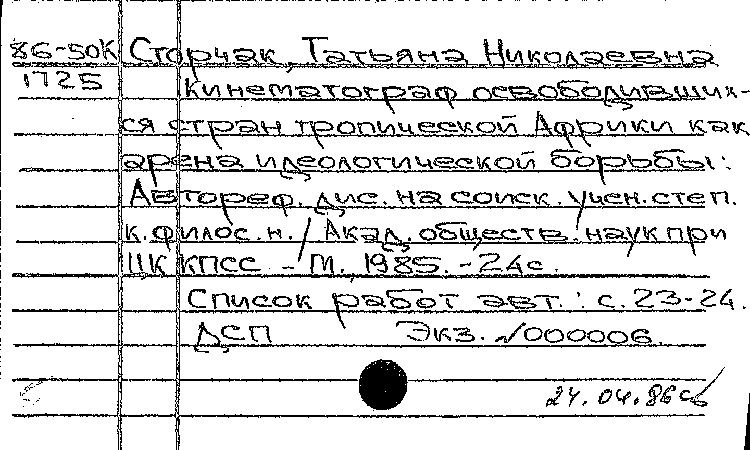 86-50К Сторчак, Татьяна Николаевна
1725 Кинематограф освободивших-
ся стран тропической Африки как
арена идеологической борьбы:
Автореф. дис. на соиск. учен. степ.
к. филос. н. / Акад. обществ. наук при
ЦК КПСС. - М., 1985. - 24 с.
Список работ авт.: с. 23-24.
ДСП Экз. №000006.
24.04.86